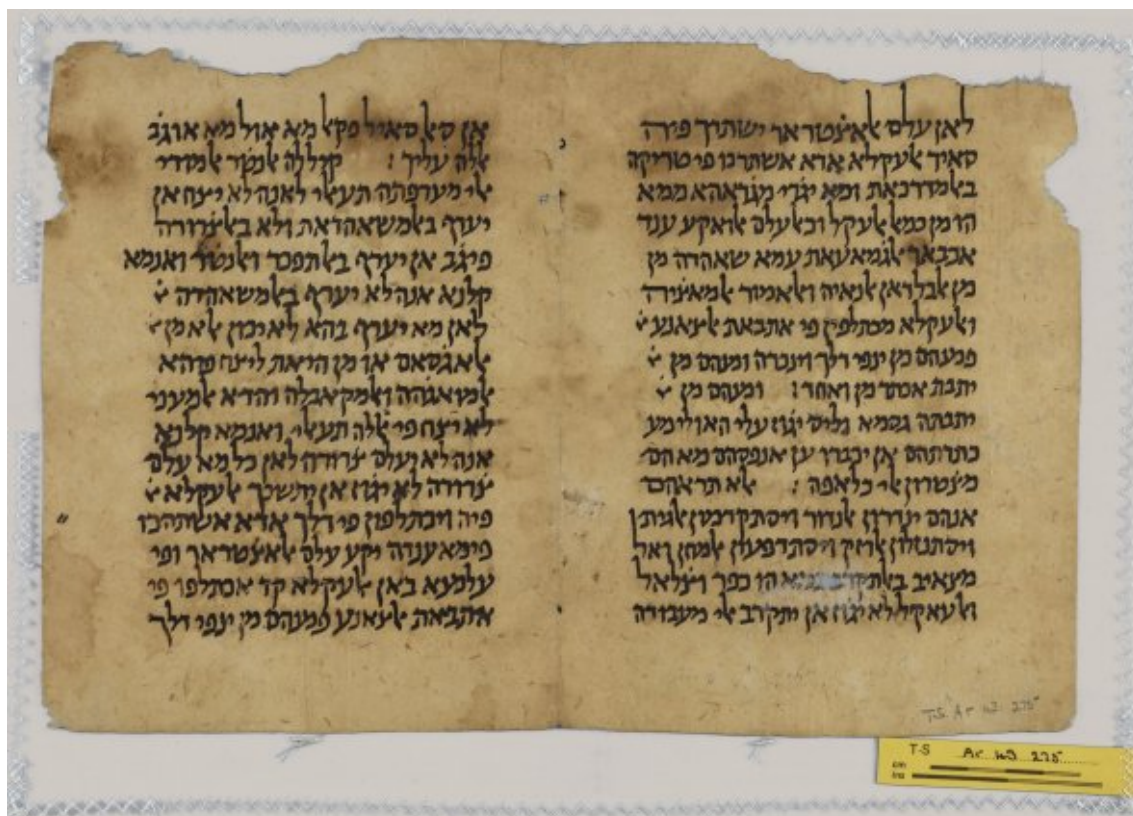 לאן עלם אלאצ̇טראר ישתרך פיה
סאיר אלעקלא אדא אשתרכו פי טריקה
באלמדרכאת ומא יג̇רי מג̇ראהא ממא
הו מן כמאל אלעקל וכאלעלם אלואקע ענד
אכבאר אלג̇מאעאת עמא שאהדה מן
מן אלבלדאן אלנאיה ואלאמור אלמאצ̇יה
ואלעקלא מכתלפין פי אתבאת אלצאנע
פמנהם מן ינפי דלך וינכרה ומנהם מן
יתבת אכתר מן ואחד : ומנהם מן
יתבתה גסמא וליס יג̇וז עלי האולי מע
כתרתהם אן יכברו ען אנפסהם מא הם
מצ̇טרון אלי כלאפה : אלא תראהם
אנהם ינדרון אלנדור ויסתקדמון
ויסתנזלון אלרזק ויסתדפעון אלמחן ואל
מצאיב באלתקרב במא הו כפר וצ̇לאל
ואלעאקל לא יג̇וז אן יתקרב אלי מעבודה
אן סאל סאול פקאל מא אול מא אוג̇ב
אללה עליך : קיל לה אלנט̇ר אלמודי
אלי מערפתה תעאלי לאנה לא יצח אן
יערף באלמשאהדאת ולא באלצ̇רורה
פיג̇ב אן יערף באלתפכר ואלנט̇ר ואנמא
קלנא אנה לא יערף באלמשאהדה
לאן מא יערף בהא לא יכון אלא מן
אלאג̇סאם או מן היאת ליצח פיהא
אלמואג̇הה ואלמקאבלה והדא אלמעני
לא יצח פי אללה תעאלי ואנמא קלנא
אנה לא יעלם צ̇רורה לאן כל מא עלם
צ̇רורה לא יג̇וז אן יתשכך אלעקלא
פיה ויכתלפון פי דלך אדא אשתרכו
פימא ענדה יקע עלם אלאצ̇טראר ופי
עלמנא באן אלעקלא קד אכתלפו פי
אתבאת אלצאנע פמנהם מן ינפי דלך
T-S Ar 43 275
T-S Ar 43 275